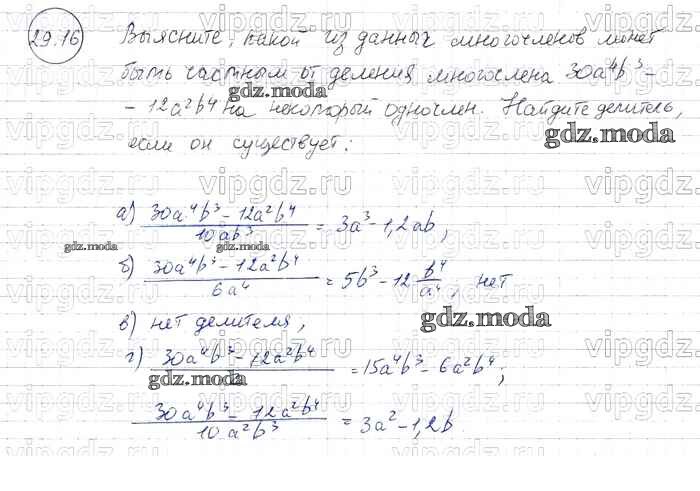 29.16
Выясните, какой из данных многочленов может
быть частным от деления многочлена 30a⁴b³ –
– 12a²b⁴ на некоторый одночлен. Найдите делитель,
если он существует:
а) (30a⁴b³ – 12a²b⁴)/(10ab³) = 3a³ – 1,2ab,
б) (30a⁴b³ – 12a²b⁴)/(6a⁴) = 5b³ – 12 b⁴/a⁴, нет
в) нет делителя,
г) (30a⁴b³ – 12a²b⁴)/2 = 15a⁴b³ – 6a²b⁴;
(30a⁴b³ – 12a²b⁴)/(10a²b³) = 3a² – 1,2b.
vipgdz.ru
gdz.moda